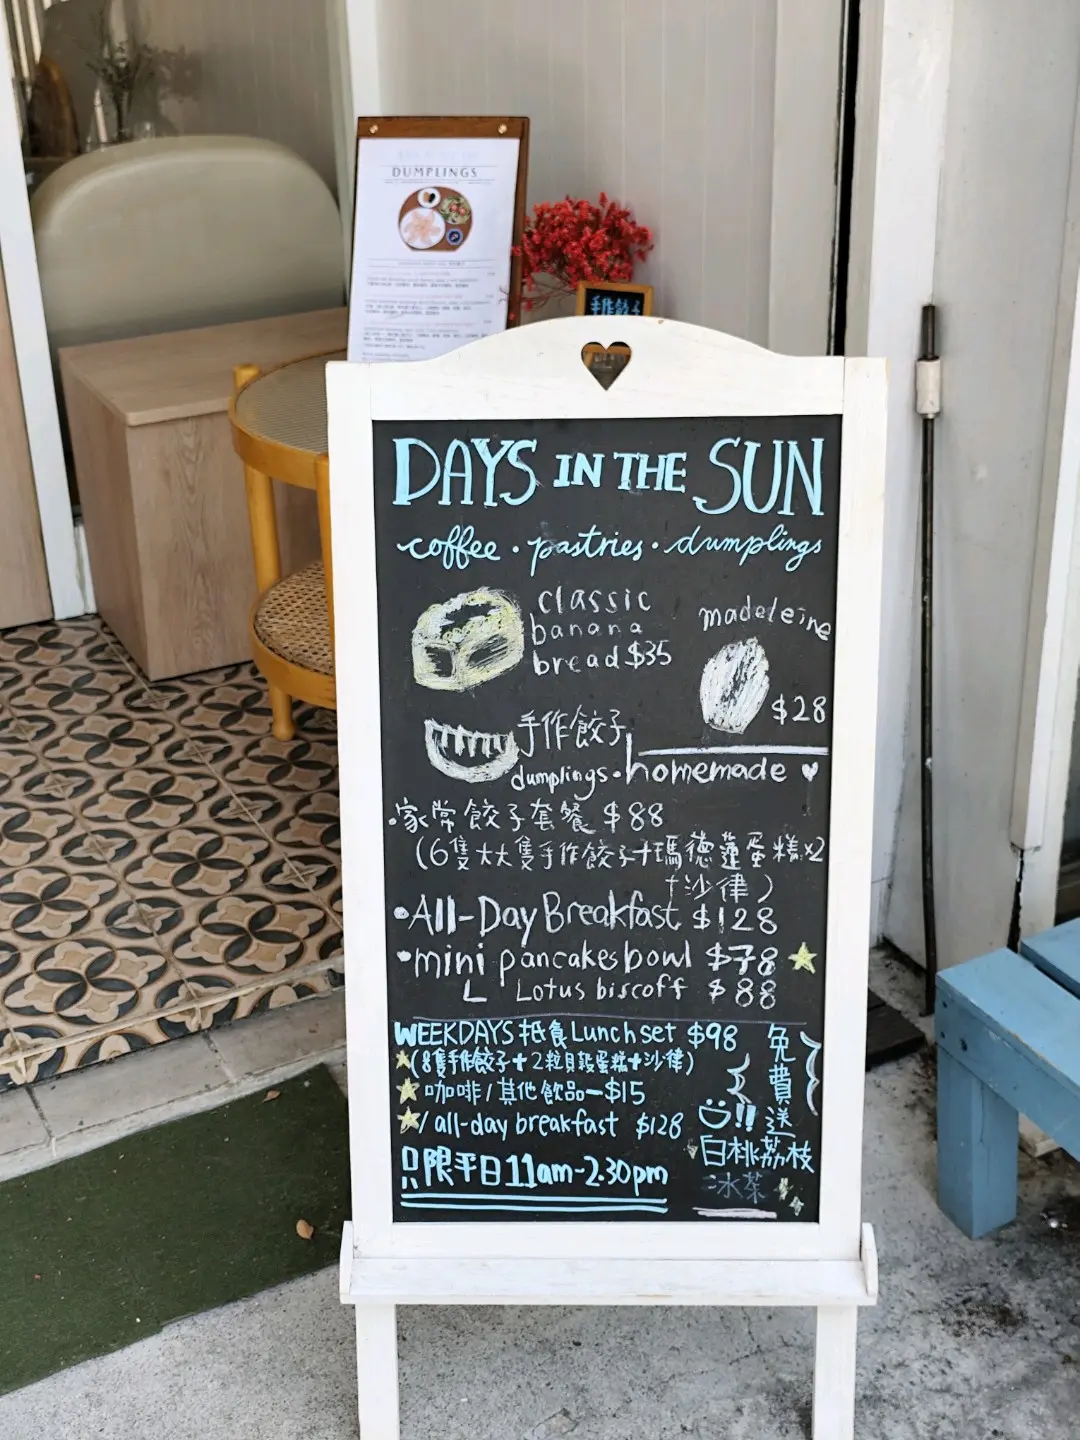 DUMPLINGS
手作餃子
DAYS IN THE SUN
coffee · pastries · dumplings
classic
banana
bread $35
madeleine
$28
手作餃子
dumplings · homemade ♥
·家常餃子套餐 $88
(6隻大大隻手作餃子+瑪德蓮蛋糕x2
+沙律)
·All-Day Breakfast $128
·mini pancakes bowl $78
L Lotus biscoff $88
WEEKDAYS 抵食 Lunch set $98
(8隻手作餃子+2粒貝殼蛋糕+沙律)
咖啡/其他飲品-$15
/ all-day breakfast $128
只限平日11am-2.30pm
免費送!!
白桃荔枝
冰茶